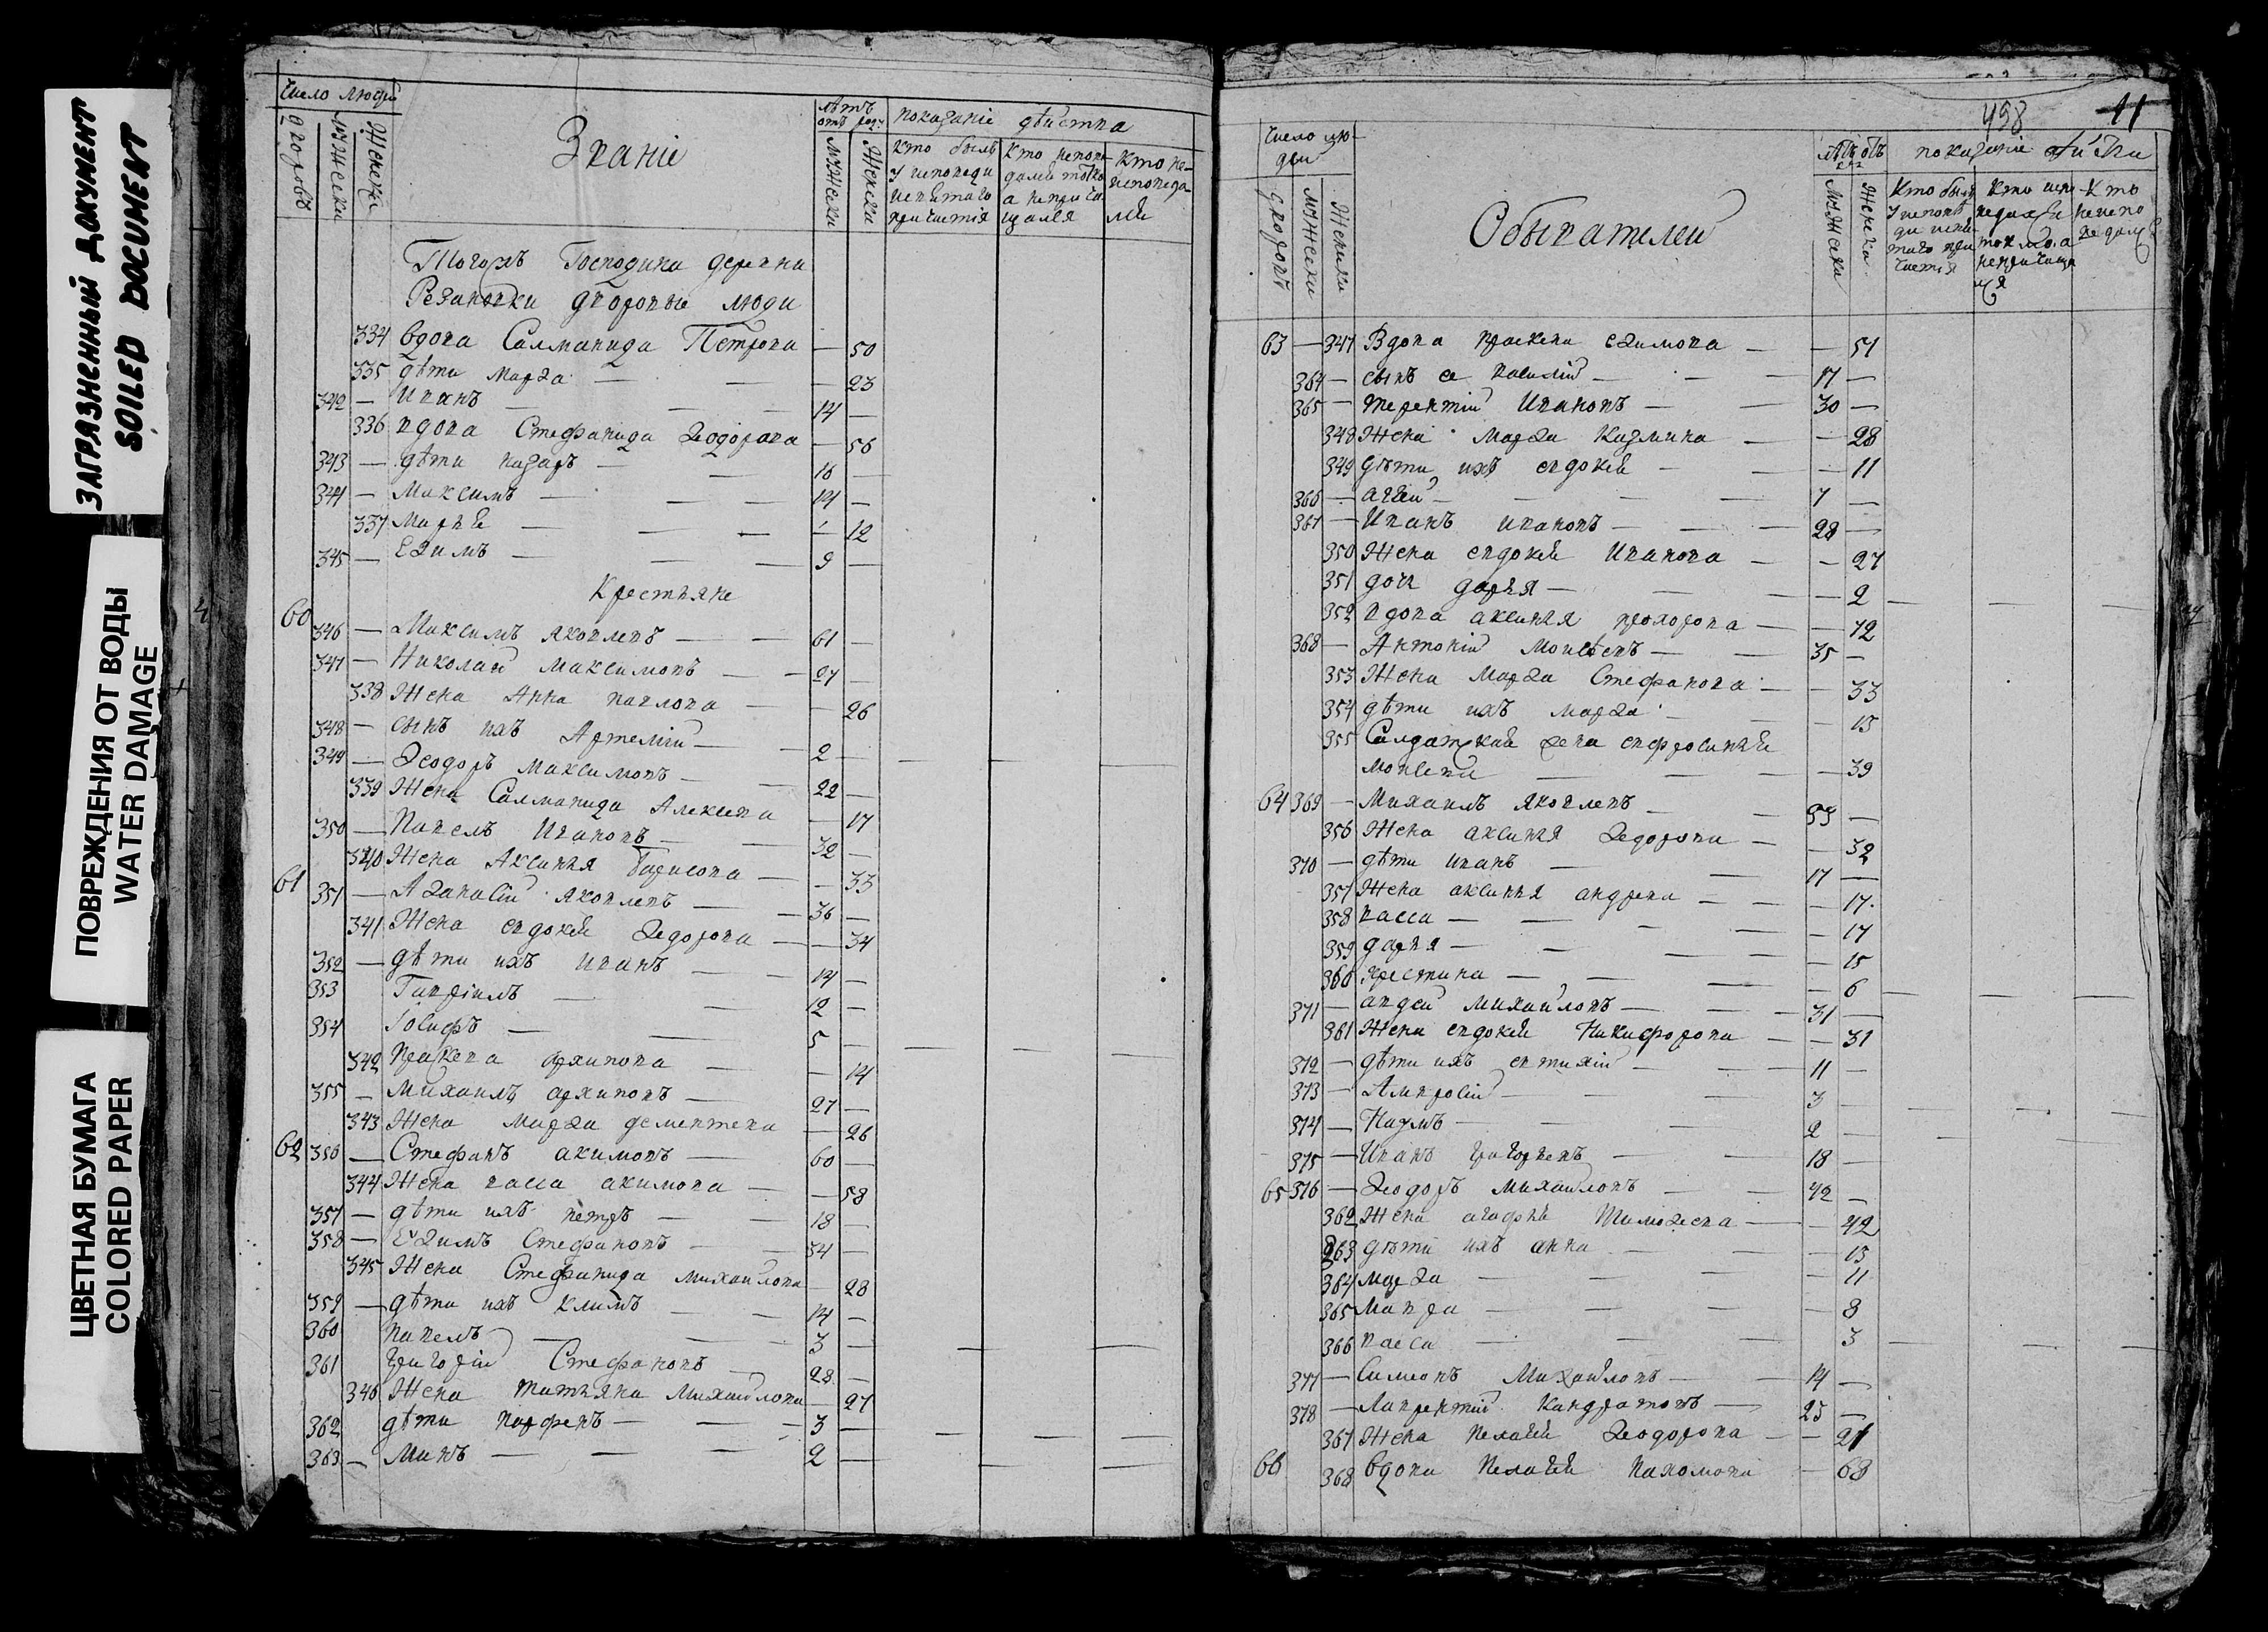 ЗАГРЯЗНЕННЫЙ ДОКУМЕНТ
SOILED DOCUMENT
ПОВРЕЖДЕНИЯ ОТ ВОДЫ
WATER DAMAGE
ЦВЕТНАЯ БУМАГА
COLORED PAPER
Число людей
дворовъ
мужеска
женска
Званіе
лѣтъ отъ рож:
мужеска
женска
показаніе дѣйства
кто былъ у исповеди и святаго причастія
кто исповедался токмо а не причащался
кто не исповедали
Тогожъ Господина деревни
Резановки дворовые люди
334 вдова Салманида Петрова — 50
335 дѣти Марѳа — — — 23
342 — Иванъ — — — 14 —
336 вдова Стефанида Ѳеодорова — 56
343 — дѣти Назаръ — — 16 —
344 — Максимъ — — — 14 —
337 Марѳа — — — — 12
345 — Еѳимъ — — — 9 —
Крестьяне
60 346 — Максимъ Яковлевъ — — 61 —
347 — Николай Максимовъ — — 27 —
338 Жена Анна павлова — — 26
348 — сынъ ихъ Артемій — — 2 —
349 — Ѳеодоръ Максимовъ — — 22 —
339 Жена Салманида Алексеева — 17
350 — Павелъ Ивановъ — — 32 —
340 Жена Аксинья Барисова — — 33
61 351 — Аѳанасій Яковлевъ — — 36 —
341 Жена евдокея Ѳедорова — — 34
352 — дѣти ихъ Иванъ — — 14 —
353 Гаврiилъ — — 12 —
354 Іосифъ — — 5 —
342 Праскева архипова — — 14
355 — Михаилъ архиповъ — 27 —
343 Жена Марѳа дементева — 26
62 356 — Стефанъ акимовъ — 60 —
344 Жена васса акимова — — 58
357 — дѣти ихъ петръ — — 18 —
358 — Еѳимъ Стефановъ — — 34 —
345 Жена Стефанида михайлова — 28
359 — дѣти ихъ климъ — — 14 —
360 павелъ — — 3 —
361 Григорій Стефановъ — 28 —
346 Жена татьяна михайлова — 27
362 дѣти парфенъ — — — 3 —
363 — Минъ — — — 2 —
498 11
Число людей
дворовъ
мужеска
женска
Обывателей
лѣтъ отъ
мужеска
женска
показаніе дѣйства
кто былъ у исповѣди и святаго причастія
кто исповедался токмо а не причащался
кто не исповедался
63 — 347 Вдова праскева еѳимова — — 51
364 — сынъ ее василій — — — 17 —
365 — терентій Ивановъ — — 30 —
348 Жена Марѳа Казмина — — 28
349 дѣти ихъ евдокея — — — 11
366 — агѣй — — — — 7 —
367 — Иванъ ивановъ — — — 28 —
350 Жена евдокея Иванова — — 27
351 дочь дарья — — — — 2
352 вдова аксинья прохорова — — 72
368 — Антоній Моисѣевъ — — 35 —
353 Жена Марѳа Стефанова — — 33
354 дѣти ихъ марѳа — — — 15
355 Салдатская жена евфросинья
Моисева — — — — 39
64 369 — Михаилъ Яковлевъ — — 53 —
356 Жена аксинья Ѳедорова — — 32
370 — дѣти иванъ — — 17 —
357 Жена аксинья андрева — — — 17
358 васса — — — — — 17
359 дарья — — — — — 15
360 христина — — — — 6
371 — авдей михайловъ — — — 31 —
361 Жена евдокея Никифорова — — 31
372 — дѣти ихъ евтихій — — — 11 —
373 — Амвросій — — — 3 —
374 — Наумъ — — — 2 —
375 — Иванъ григорьевъ — — 18 —
65 376 — Ѳеодоръ михайловъ — — 42 —
362 Жена агафья Тимоѳеева — — 42
363 дѣти ихъ анна — — — 13
364 марѳа — — — — 11
365 Мавра — — — — 8
366 васса — — — 3
377 — Симеонъ Михайловъ — — 14 —
378 — Лаврентій Кандратовъ — 25 —
367 Жена пелагея Ѳеодорова — — 21
66 368 вдова пелагея пахомова — 68